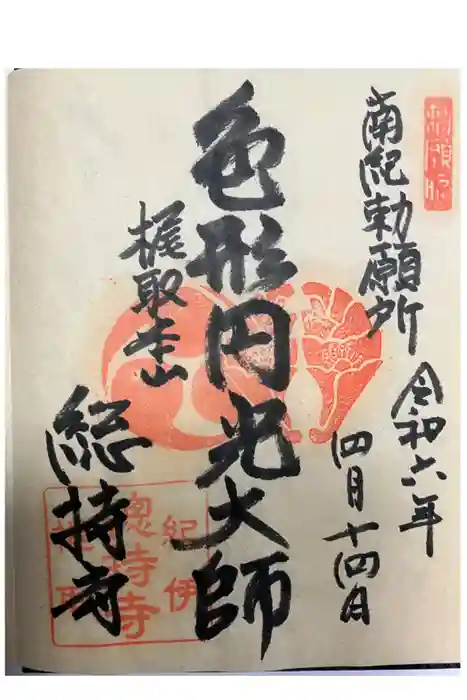 勅願所
南紀勅願所
令和六年
四月十四日
色形円光大師
梶取本山
総持寺
紀伊
總持寺
梶取